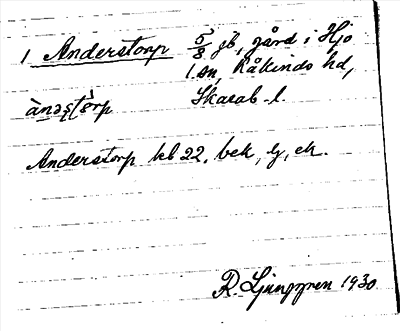 1 Anderstorp 5/8 jb, gård i Hjo
l.sn, Kåkinds hd,
Skarab. l.
Anderstorp kb 22, bek, lj, ek.
R. Ljunggren 1930